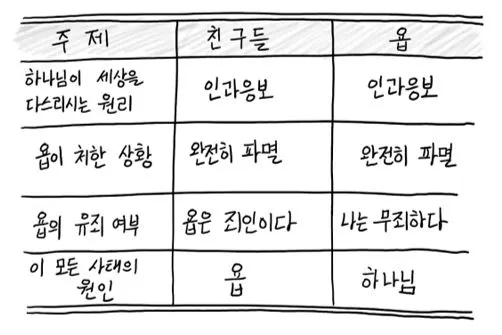 주제 친구들 욥
하나님이 세상을
다스리시는 원리 인과응보 인과응보
욥이 처한 상황 완전히 파멸 완전히 파멸
욥의 유죄 여부 욥은 죄인이다 나는 무죄하다
이 모든 사태의
원인 욥 하나님